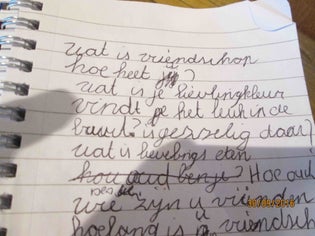 wat is vriendschap
hoe heet jij?
wat is je lievlingkleur
vindt je het leuk in de
buurt? is gezzelig daar?
wat is lievelings eten
hou oud benje? Hoe oud
wie zijn u vriendn
hoelang is vriendsch